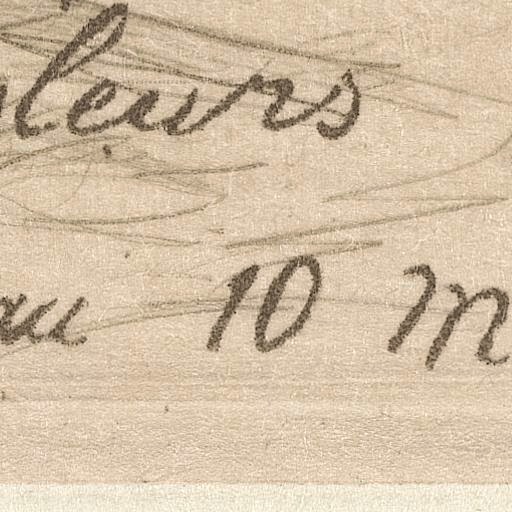 leurs
au 10 m